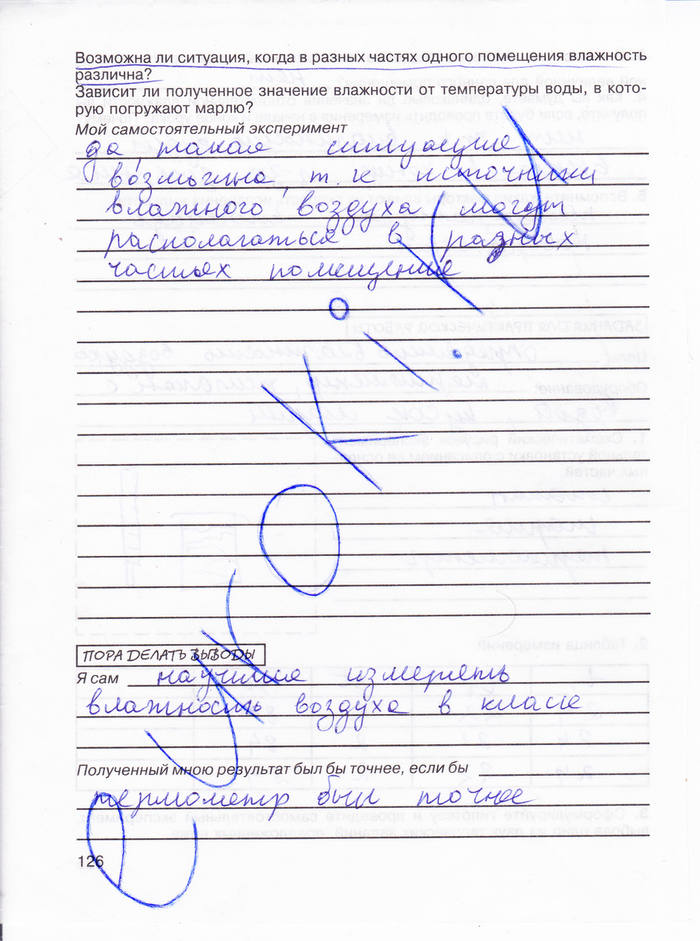 Возможна ли ситуация, когда в разных частях одного помещения влажность
различна?
Зависит ли полученное значение влажности от температуры воды, в кото-
рую погружают марлю?
Мой самостоятельный эксперимент
да, такая ситуация
возможна, т.к источники
влажного воздуха могут
располагаться в разных
частях помещение
ПОРА ДЕЛАТЬ ВЫВОДЫ
Я сам научился измерять
влажность воздуха в класе
Полученный мною результат был бы точнее, если бы
термометр был точнее
126